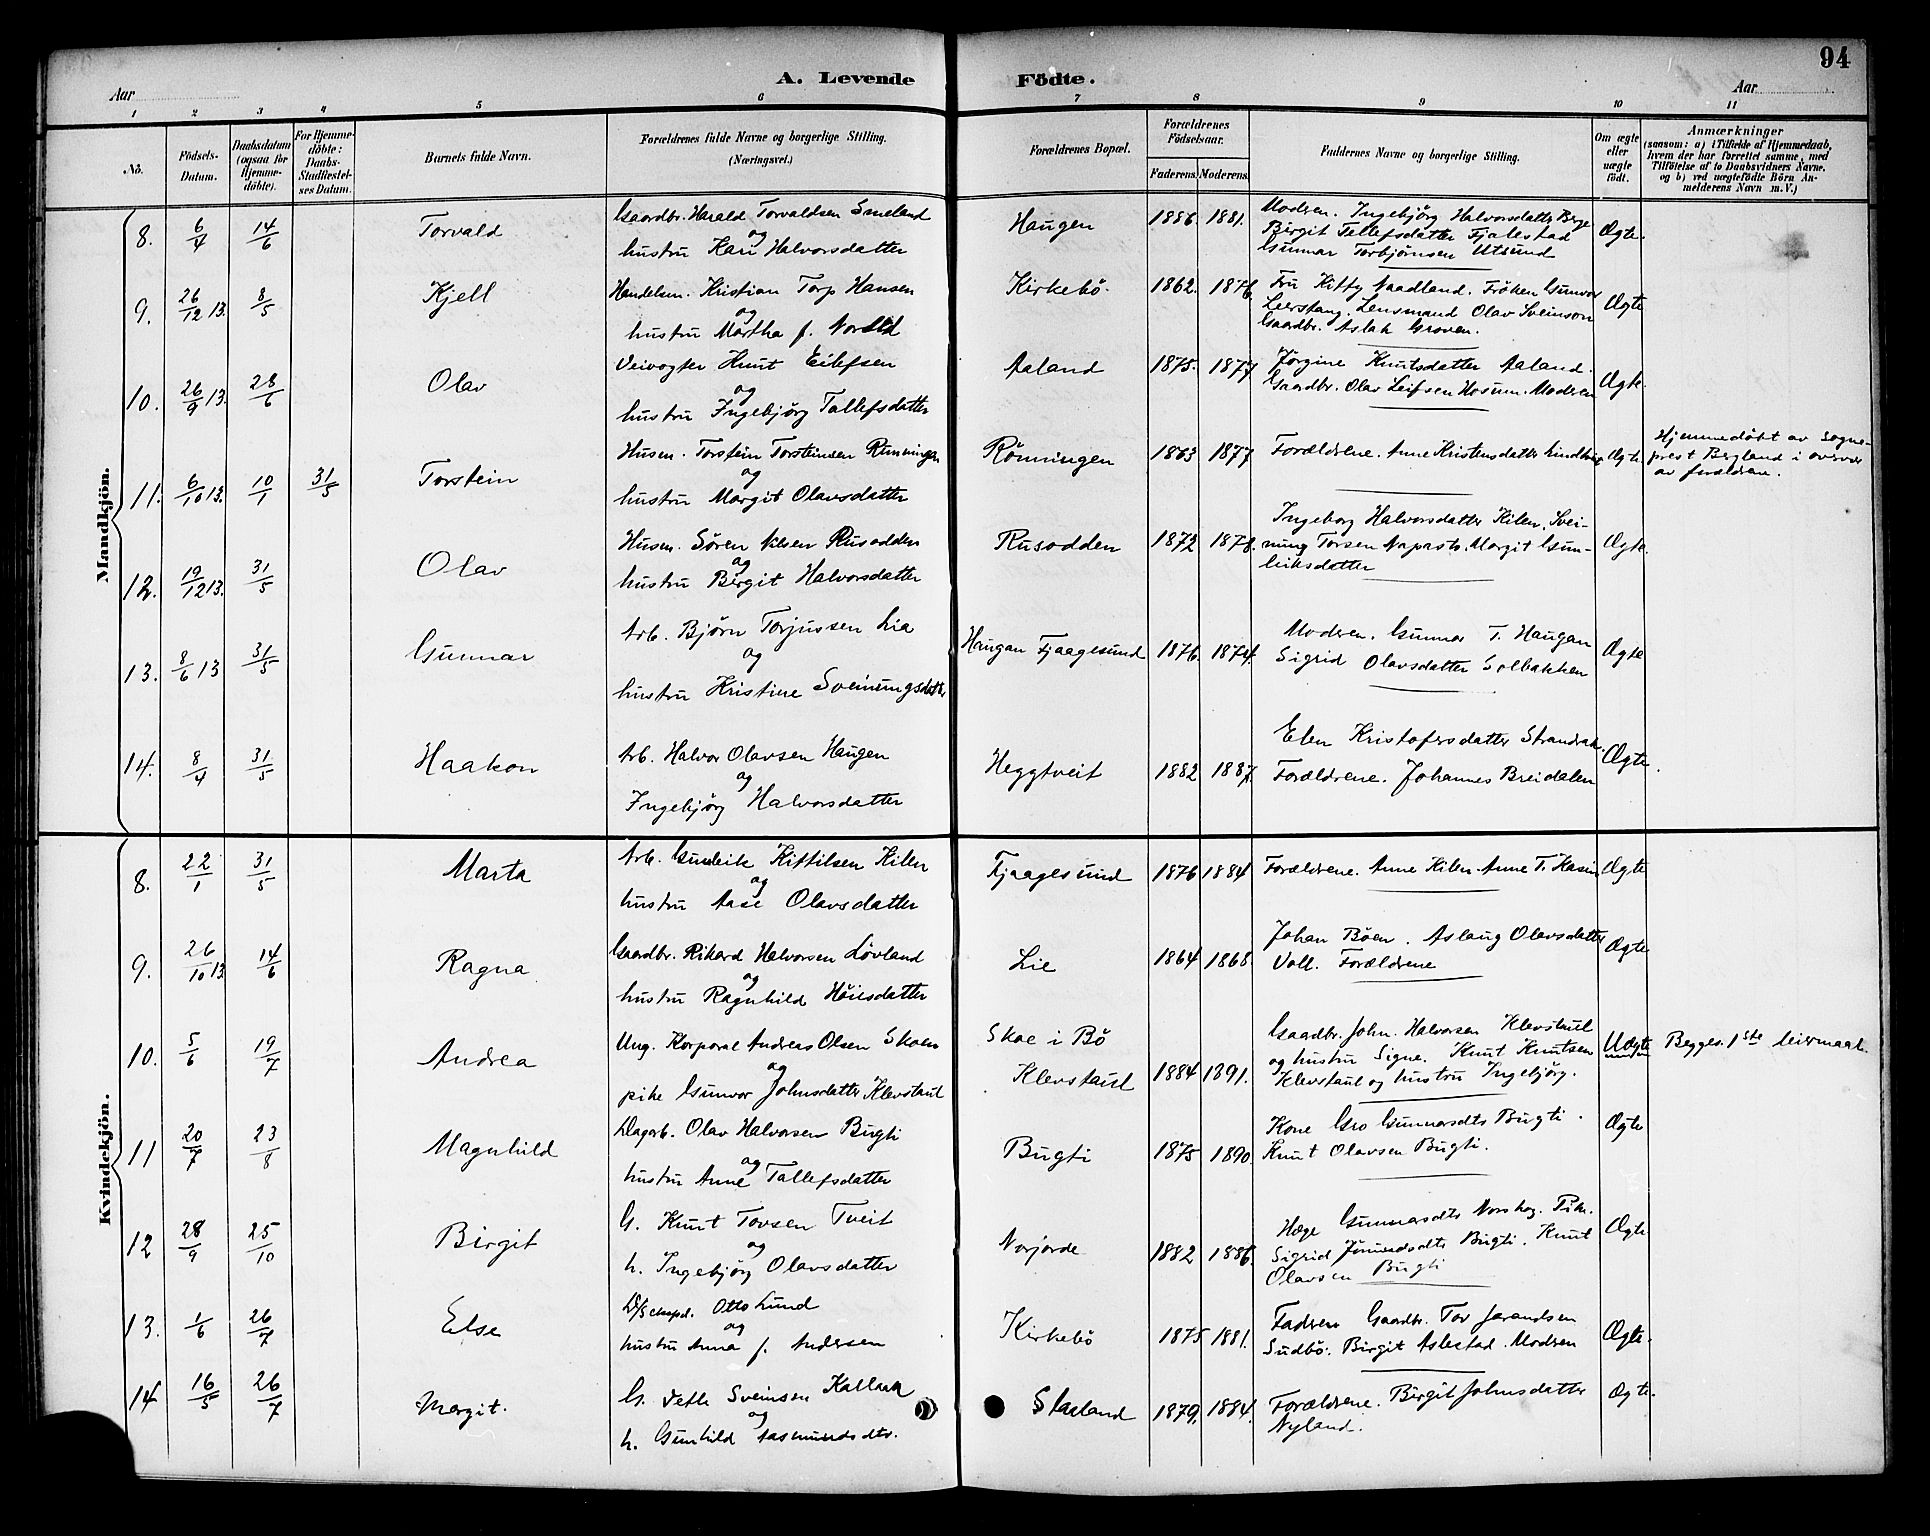 94
A. Levende Födte.
Aar
Aar
1 2 3 4 5 6 7 8 9 10 11
No.
Födsels-Datum.
Daabsdatum (ogsaa for Hjemme-döbte).
For Hjemme-döbte: Daabs-Stadfæstel-ses Datum.
Barnets fulde Navn.
Forældrenes fulde Navne og borgerlige Stilling. (Næringsvei.)
Forældrenes Bopæl.
Forældrenes Födselsaar.
Faderens. Moderens.
Faddernes Navne og borgerlige Stilling.
Om ægte eller uægte födt.
Anmærkninger
(saasom: a) i Tilfælde af Hjemmedaab, hvem der har forrettet samme, med Tilföielse af to Daabsvidners Navne, og b) ved uægtefödte Börn An-melderens Navn m. V.)
Mandkjön.
8. 6/4 14/6 Torvald
Gaardbr. Harald Torvaldsen Smeland
og
hustru Kari Halvorsdatter
Haugen 1886. 1881.
Moderen. Ingebjörg Halvorsdatter Berge
Birgit Tallefsdatter Fjalestad
Gunnar Torbjörnsen Utsund
Ægte.
9. 26/12 13. 8/5 Kjell
Handelsm. Kristian Torp Hansen
og
hustru Martha f. Norlid
Kirkebö. 1862. 1876.
Fru Kitty Naadland. Fröken Gunvor
Leerstang. Lensmand Olav Sveinson
Gaardbr. Aslak Groven.
Ægte
10. 26/9 13. 28/6 Olav
Veivogter Knut Eilefsen
og
hustru Ingebjörg Tallefsdatter
Aaland 1875. 1877
Jörgine Knutsdatter Aaland.
Gaardbr. Olav Leifsen Hosum. Moderen
Ægte.
11. 6/10 13. 10/1 31/5 Torstein
Husm. Torstein Torsteinsen Rönningen
og
hustru Margit Olavsdatter
Rönningen 1863 1877
Forældrene. Anne Kristensdatter Lindheim
Ægte.
Hjemmedöbt av Sogne-
prest Bergland i overvær
av forældrene.
12. 19/12 13. 31/5 Olav
Husm. Sören Nilsen Rusodden
og
hustru Birgit Halvorsdatter
Rusodden 1872 1878.
Ingeborg Halvorsdatter Kilen, Svei-
nung Torsen Napasts. Margit Gun-
leiksdatter
Ægte.
13. 8/6 13 31/5 Gunnar
Arb. Björn Torjussen Lia
og
hustru Kristine Sveinungsdatter
Haugan Fjaagesund 1876. 1874.
Moderen. Gunnar T. Haugan
Sigrid Olavsdatter Solbakken
Ægte
14. 8/4 31/5 Haakon
Arb. Halvor Olavsen Haugen
og
Ingebjörg Halvorsdatter
Heggtveit 1882 1887.
Elen Kristofersdatter
Forældrene. Johannes Breidalen
Ægte.
Kvindekjön.
8. 22/1 31/5 Marta
Arb. Gunleik Kittilsen Kilen
og
hustru Aase Olavsdatter
Fjaagesund 1876 1884
Forældrene. Anne Kilen. Anne T. Kasin
Ægte
9. 26/10 13 14/6 Ragna
Gaardbr. Rikard Halvorsen Lövland
og
hustru Ragnhild Höiesdatter
Lie 1864 1868.
Johan Böen. Aslaug Olavsdatter
Voll. Forældrene
Ægte
10. 5/6 19/7 Andrea
Ung. Korporal Andreas Olsen Skoen
og
pike Gunvor Johnsdatter Klevstaul
Skoe i Bö
Klevstaul 1884 1891.
Gaardbr. John Halvorsen Klevstaul
og hustru Signe. Knut Knutsen
Klevstaul og hustru Ingebjörg.
Uægte
Begges 1ste leiermaal.
11 20/7 23/8 Magnhild
Dagarb. Olav Halvorsen Bugti
og
hustru Anne Tallefsdatter
Bugti 1875 1890.
Kone Gro Gunnarsdtr Bugti.
Knut Olavsen Bugti.
Ægte
12 28/9 25/10 Birgit
G. Knut Tovsen Tveit
og
h. Ingebjörg Olavsdatter
Norjorde 1882 1886.
Hæge Gunnarsdtr Norskog. Pike.
Sigrid Jörundsdtr Bugti. Knut
Olavsen Bugti
Ægte
13. 1/6 26/7 Else
D/Sexped. Otto Lund
og
hustru Anna f. Andersen
Kirkebö 1875 1881.
Fadren Gaardbr. Tor Jarandsen
Sudbö. Birgit Aslestad. Modren
Ægte.
14 16/5 26/7 Margit.
G. Vetle Sveinsen Kallaak
og
h. Gunhild Aasmundsdtr.
Staaland 1879. 1884.
Forældrene. Birgit Johnsdatter
Nyland.
Ægte.